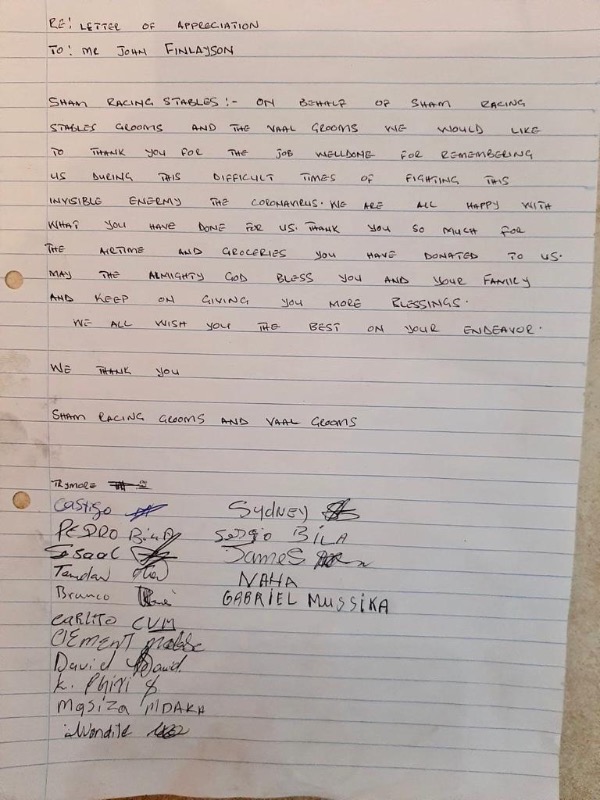 RE: LETTER OF APPRECIATION
TO: MR JOHN FINLAYSON
SHAM RACING STABLES:- ON BEHALF OF SHAM RACING
STABLES GROOMS AND THE VAAL GROOMS WE WOULD LIKE
TO THANK YOU FOR THE JOB WELLDONE FOR REMEMBERING
US DURING THIS DIFFICULT TIMES OF FIGHTING THIS
INVISIBLE ENERMY THE CORONAVIRUS. WE ARE ALL HAPPY WITH
WHAT YOU HAVE DONE FOR US. THANK YOU SO MUCH FOR
THE AIRTIME AND GROCERIES YOU HAVE DONATED TO US.
MAY THE ALMIGHTY GOD BLESS YOU AND YOUR FAMILY
AND KEEP ON GIVING YOU MORE BLESSINGS.
WE ALL WISH YOU THE BEST ON YOUR ENDEAVOR.
WE THANK YOU
SHAM RACING GROOMS AND VAAL GROOMS
TRYMORE
CASTIGO SYDNEY
PEDRO BILA SERGIO BILA
ISAAC JAMES
Tendai NAHA
Branco GABRIEL MUSSIKA
CARLITO CUM
CLEMENT
David David
K. PHIRI
Mqsiza MDAKA